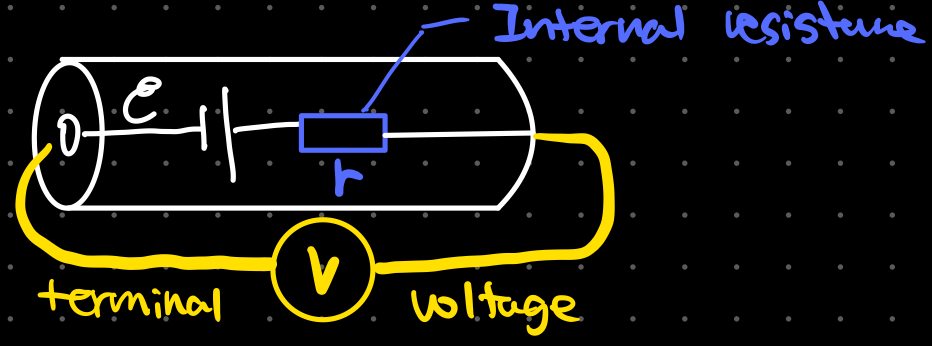 Internal resistance
e
r
V
terminal voltage